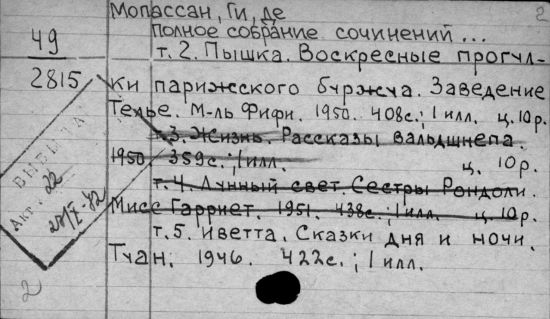 Мопассан, Ги, де
2
49
Полное собрание сочинений...
т. 2. Пышка. Воскресные прогул-
2815
ки парижского буржуа. Заведение
Телье. М-ль Фифи. 1950. 408с.; 1 илл. ц. 10р.
т. 3. Жизнь. Рассказы вальдшнепа.
1950 359с.; 1 илл. ц. 10р.
т. 4. Лунный свет. Сестры Рондоли.
Мисс Гарриет. 1951. 438с.; 1 илл. ц. 10р.
т. 5. Иветта. Сказки дня и ночи.
Туан. 1946. 422с.; 1 илл.
Акт 22
2